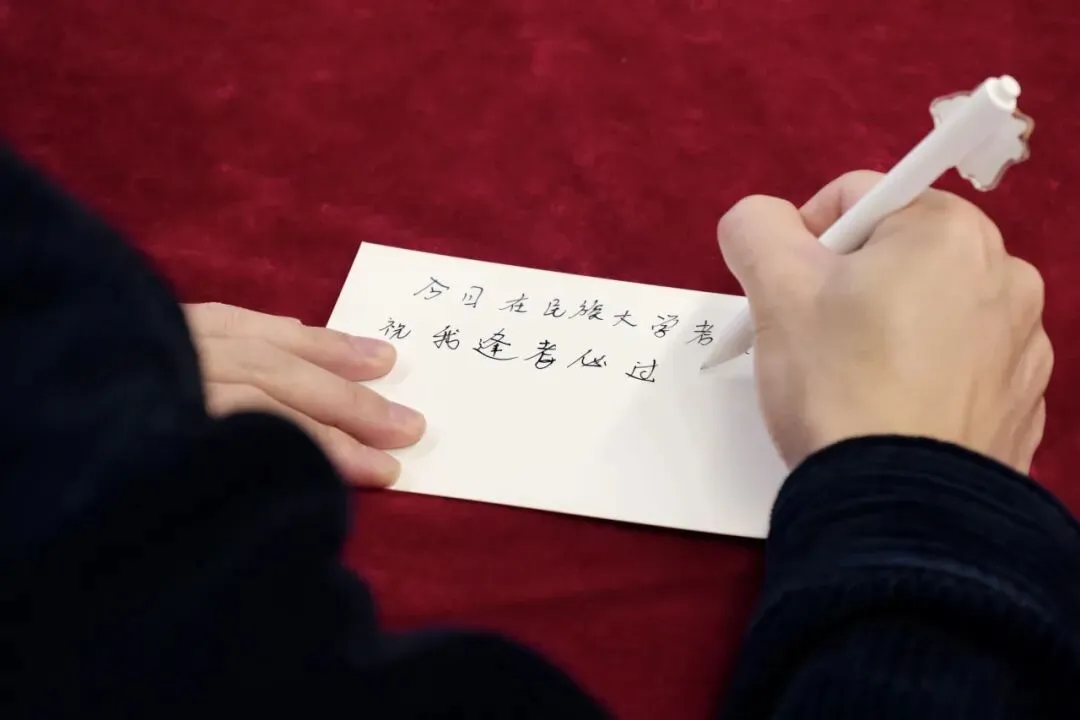 今日在民族大学考
祝我逢考必过